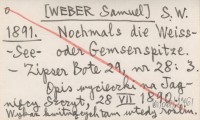 [WEBER Samuel] S.W.
1891. Nochmals die Weiss-
-See- oder Gemsenspitze.
- Zipser Bote 29, nr 28: 3.
Opis wycieczki na Jag-
nięcy Szczyt, 28 VII 1890.
Wykaz kwitnących tam wtedy roślin.